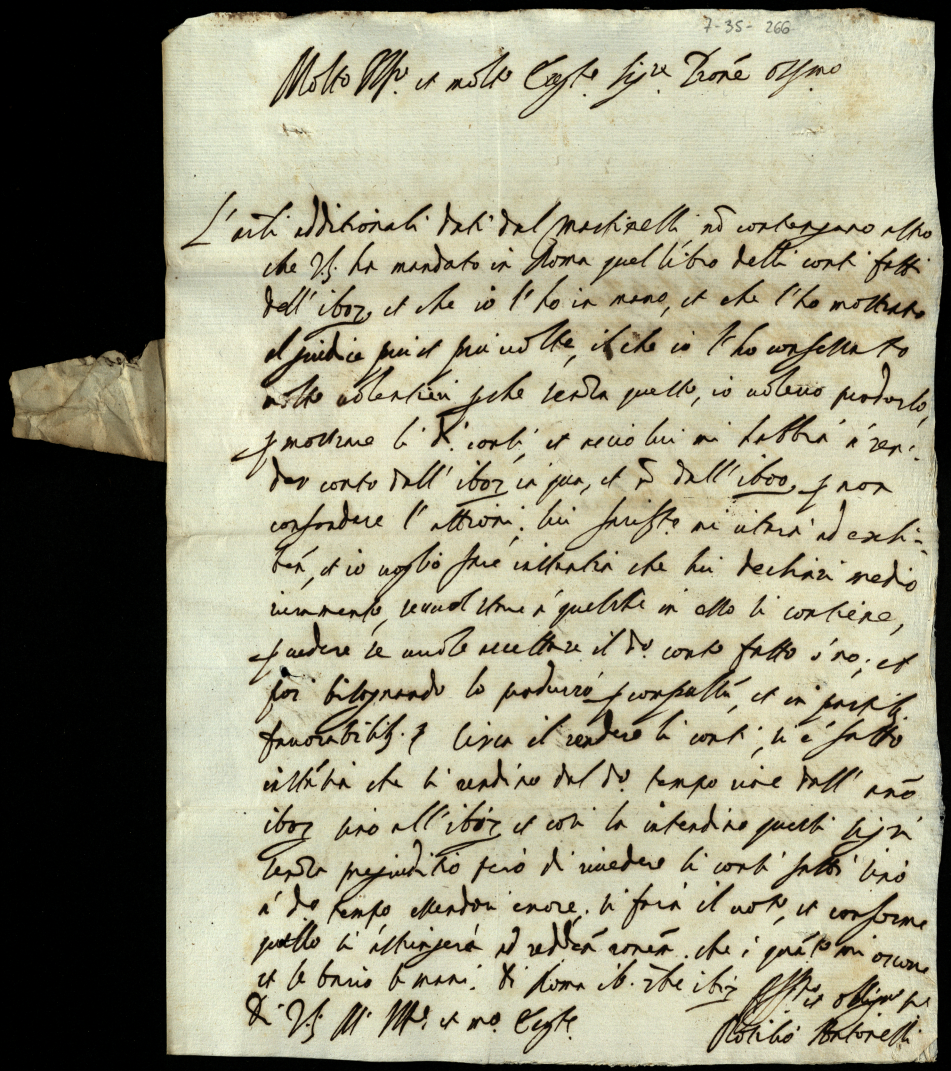 7-35-266
Molto Ill.re et molto Ecc.te Sig.re Prone oss.mo
L'arti additionali dati dal Martinelli nō contengano altro
che V.S. ha mandato in Roma quel libro delli conti fatti
dell' 1607, et che io l'ho in mano, et che l'ho mostrato
al giudice più et più volte, il che io l'ho confessato
molto volentieri p che senza questo, io volevo produrlo,
p mostrare li d.i conti, et acciò lui mi habbia à ren-
der conto dall' 1607 in qua, et nō dall' 1600, p non
confondere l'attioni, lui
et io voglio fare instantia che lui dechiari medio
iuramento, se vuol stare à quel che in esso si contiene,
p vedere se vuole accettare il d.o conto fatto ò no; et
poi bisognando lo produrrò et in partib.
favorabilib. Circa il rendere li conti, si è fatto
instātia che si rendino dal d.o tempo cioè dall' anō
1607 sino all' et così la intendino questi Sig.ri
senza pregiuditio però di rivedere li conti fatti sino
à d.o tempo essendovi errore, si farà il voto, et conforme
quello si astringerà ad che è quāto mi occorre
et le bacio le mani. Di Roma
Di V.S. M. Ill.re et m.o Ecc.te
Aff.mo et oblig.mo
Antonelli